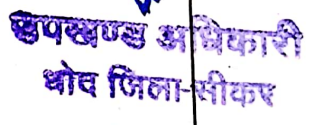 उपखण्ड अधिकारी
धोद जिला-सीकर